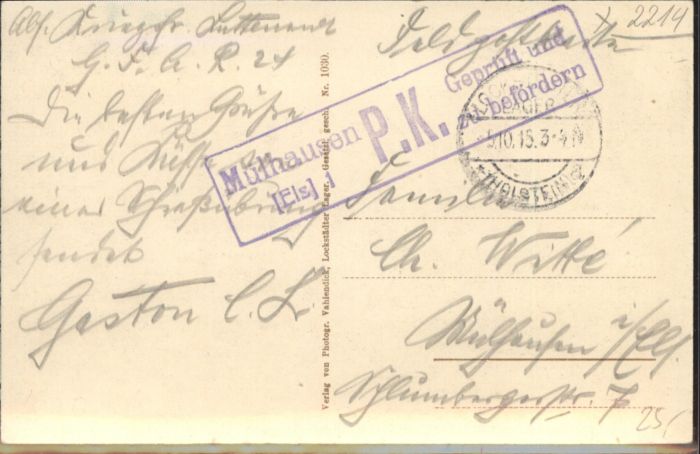 Abs. Kriegsfr. Luttenauer
G. F. A. R. 24
Die besten Grüße
und Küsse von
einer Schießübung
sendet
Gaston C. L.
2214
Feldpostkarte
Mülhausen
[Els] 1
P.K.
Geprüft und
zu befördern
LOCKSTEDTER
LAGER
5.10.15.3-4N
(HOLSTEIN)
Familie
Ch. Witté
Mülhausen i/Els.
Schlumbergerstr. 7
25,-
Verlag von Photogr. Vahlendick, Lockstädter Lager. Gesetzl. gesch. Nr. 1030.